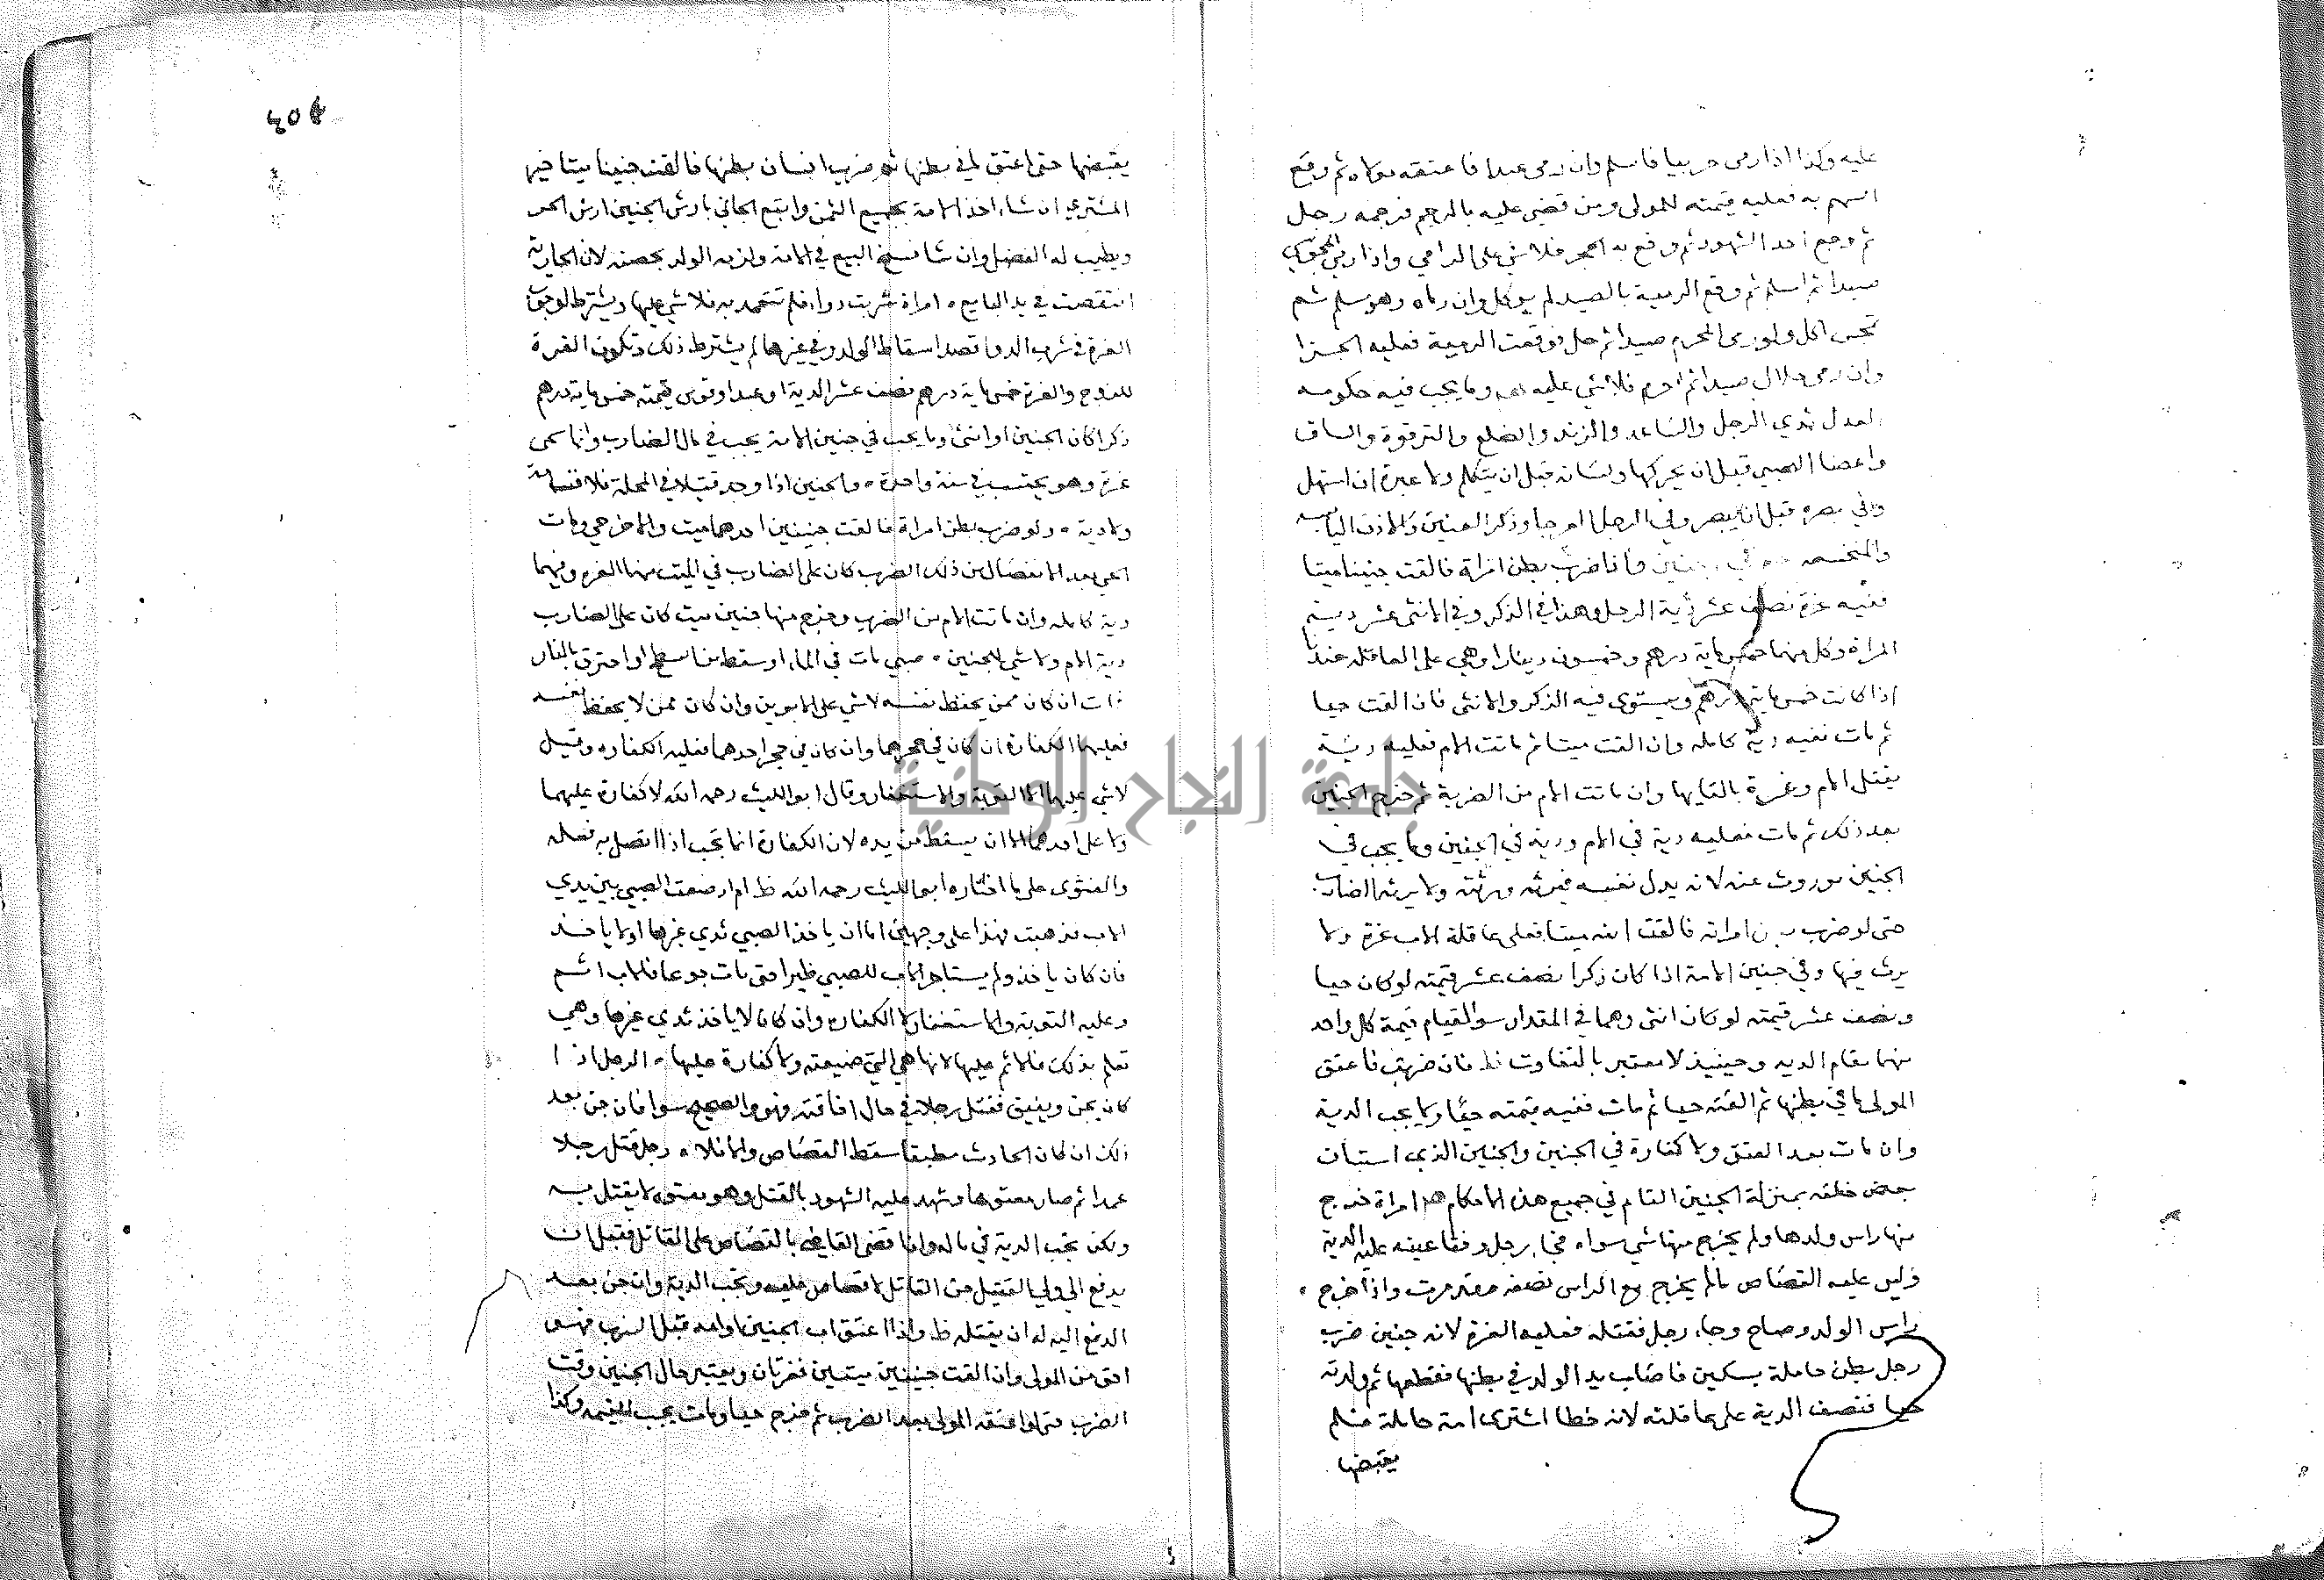 عليه وكذا اذا رمى حربيا فاسلم وان رمى عبدا فاعتقه مولاه ثم وقع
السهم به فعليه قيمته للمولى ومن قضى عليه بالرجم فرجمه رجل
ثم رجع احد الشهود ثم وقع به الحجر فلا شي على الرامي واذا رمى المجوسي
صيدا ثم اسلم ثم وقع الرمية بالصيد لم يوكل وان رماه وهو مسلم ثم
تمجس اكل ولو رمى المحرم صيدا ثم حل فوقعت الرمية فعليه الجزا
وان رمى حلال صيدا ثم احرم فلا شي عليه وما يجب فيه حكومه
العدل ثدي الرجل والساعد والزند والضلع والترقوة والساق
واعضا الصبي قبل ان يحركها ولسانه قبل ان يتكلم ولا عبرة ان استهل
وفي بصره قبل ان يبصر وفي الرجل العرجا وذكر العنين والاذن اليابسه
في الجنين واذا ضرب بطن امراة فالقت جنينا ميتا
ففيه غرة نصف عشر دية الرجل وهذا في الذكر وفي الانثى عشر دية
المراة وكل منهما خمسماية درهم وخمسون دينارا وهي على العاقله عندنا
اذا كانت خمسماية درهم ويستوى فيه الذكر والانثى فان القت حيا
ثم مات ففيه دية كامله وان القت ميتا ثم ماتت الام فعليه دية
بقتل الام وغرة بالقايها وان ماتت الام من الضربة ثم خرج الجنين
بعد ذلك ثم مات فعليه دية في الام ودية في الجنين وما يجب في
الجنين موروث عنه لانه بدل نفسه فيرثه ورثته ولا يرثه الضارب
حتى لو ضرب بطن امراته فالقت ابنه ميتا فعلى عاقلة الاب غرة ولا
يرث فيها وفي جنين الامة اذا كان ذكرا نصف عشر قيمته لو كان حيا
وعشر قيمته لو كان انثى وهما في المقدار سوا لقيام قيمة كل واحد
منهما مقام الديه وحينيذ لا معتبر بالتفاوت فان ضربت فاعتق
المولى ما في بطنها ثم القته حيا ثم مات ففيه قيمته حيا ولا يجب الدية
وان مات بعد العتق ولا كفارة في الجنين والجنين الذي استبان
بعض خلقه بمنزلة الجنين التام في جميع هذه الاحكام امراة خرج
منها راس ولدها ولم يخرج منها شي سواه فجا رجل وفقا عينه عليه الدية
وليس عليه القصاص ما لم يخرج مع الراس نصفه واذا خرج
راس الولد وصاح وجاء رجل فقتله فعليه الغرة لانه جنين ضرب
رجل بطن حاملة بسكين فاصاب يد الولد في بطنها فقطعها ثم ولدته
حيا فنصف الدية على عاقلته لانه خطا اشترى امة حاملة فلم
يقبضها
يقبضها حتى اعتق ما في بطنها ثم ضرب انسان بطنها فالقت جنينا ميتا خير
المشتري ان شاء اخذ الامة بجميع الثمن واتبع الجاني بارش الجنين ارش الحر
ويطيب له الفضل وان شا فسخ البيع في الامة ولزمه الولد بحصته لان الجارية
انتقصت في يد البايع امراة شربت دواء فلم تتعمد به فلا شي عليها ويشترط لوجوب
الغرة في شرب الدوا قصد اسقاط الولد وفي غيرها لم يشترط ذلك وتكون الغرة
للزوج والغرة خمسماية درهم نصف عشر الدية او عبد او فرس قيمته خمسماية درهم
ذكرا كان الجنين او انثى وما يجب في جنين الامة يجب في مال الضارب وانما سمي
غرة وهو يجب في سنة واحدة والجنين اذا وجد قتيلا في المحلة فلا قسامة
ولا دية ولو ضرب بطن امراة فالقت جنينين احدهما ميت والاخر حي ومات
الحي بعد الانفصال من ذلك الضرب كان على الضارب في الميت منهما الغرة وفيهما
دية كامله وان ماتت الام من الضرب وخرج منها جنين ميت كان على الضارب
دية الام ولا شي للجنين صبي مات في الماء او سقط من سطح او احترق بالنار
فمات ان كان ممن يحفظ نفسه لا شي على الابوين وان كان ممن لا يحفظ نفسه
فعليهما الكفارة ان كان في حجرهما وان كان في حجر احدهما فعليه الكفاره وقيل
لا شي عليهما الا التوبة والاستغفار وقال ابو الليث رحمه الله لا كفارة عليهما
ولا على احدهما الا ان يسقط من يده لان الكفارة انما تجب اذا اتصل به فعله
والفتوى على ما اختاره ابو الليث رحمه الله ام ارضعت الصبي بين يدي
الاب فذهبت فهذا على وجهين اما ان ياخذ الصبي ثدي غيرها او لا ياخذ
فان كان ياخذ ولم يستاجر الاب للصبي ظيرا حتى مات جوعا فالاب اثم
وعليه التوبة والاستغفار لا الكفارة وان كان لا ياخذ ثدي غيرها وهي
تعلم بذلك فالاثم عليها لانها هي التي ضيعته ولا كفارة عليها الرجل اذا
كان يجن ويفيق فقتل رجلا في حال افاقته فهو والصحيح سوا فان جن بعد
ذلك ان كان الحادث مطبقا سقط القصاص والا فلا رجل قتل رجلا
عمدا ثم صار معتوها وشهد عليه الشهود بالقتل وهو معتوه لا يقتل به
ولكن يجب الدية في ماله واذا قضى القاضي بالقصاص على القاتل فقبل ان
يدفع الى ولي القتيل جن القاتل لا قصاص عليه وتجب الدية وان جن بعد
الدفع اليه له ان يقتله واذا اعتق اب الجنين وامه قبل الضرب فهو
احق من المولى وان القت جنينين ميتين فغرتان ويعتبر حال الجنين وقت
الضرب حتى لو اعتقه المولى بعد الضرب ثم خرج حيا ومات يجب القيمة وكذا
جامعة النجاح الوطنية